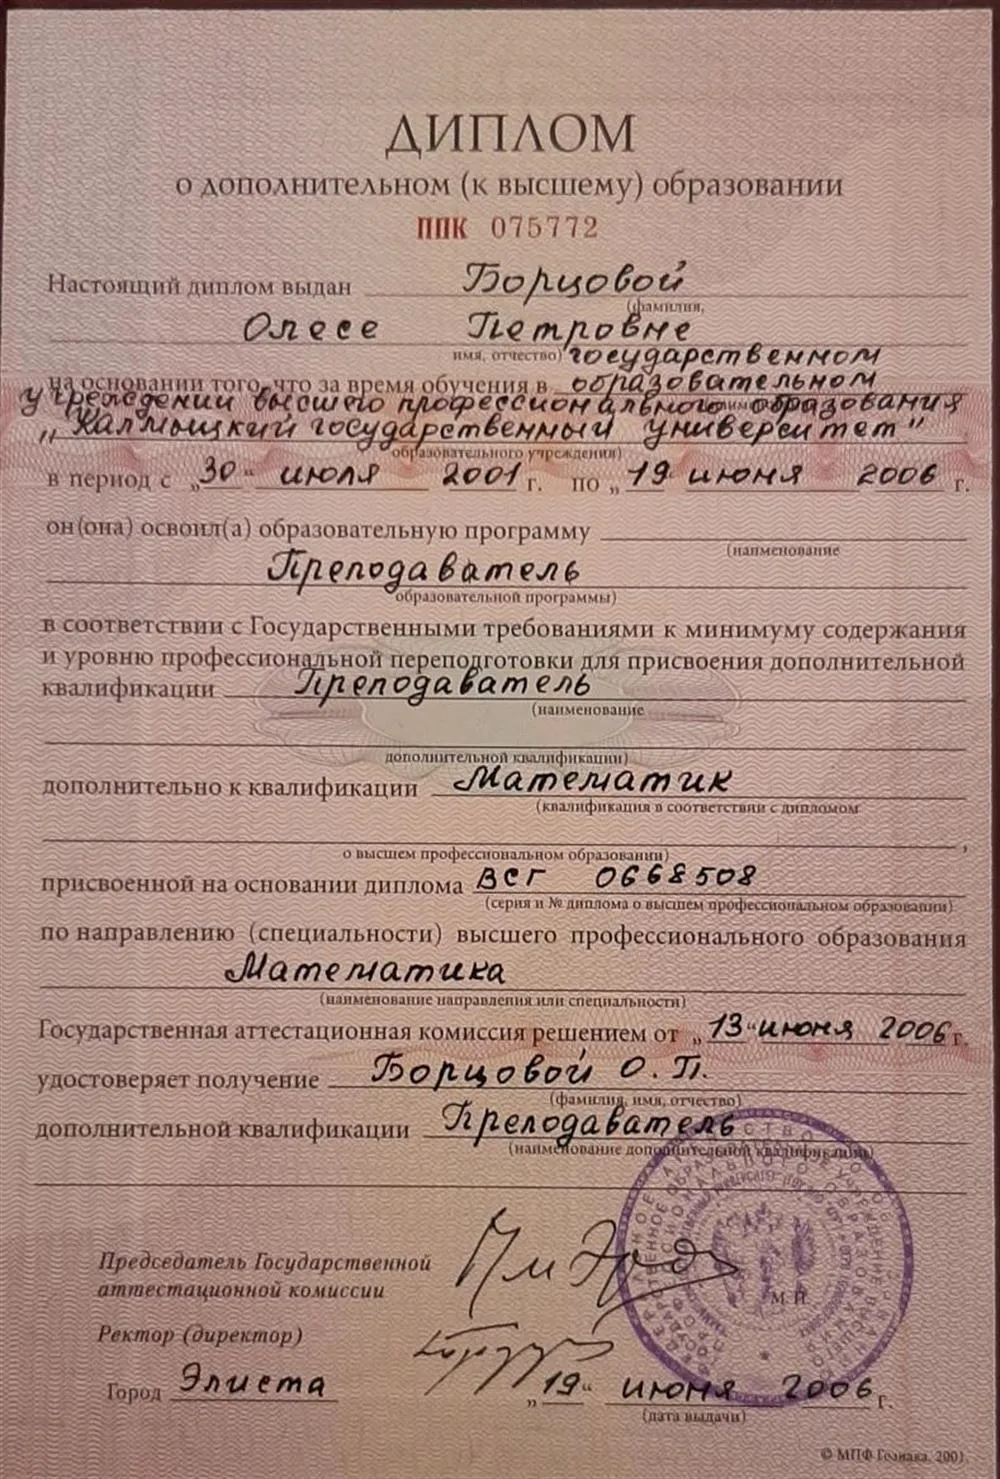 ДИПЛОМ
о дополнительном (к высшему) образовании
ППК 075772
Настоящий диплом выдан Борцовой
(фамилия,
Олесе Петровне
имя, отчество) государственном
на основании того, что за время обучения в образовательном
учреждении высшего профессионального образования
„Калмыцкий государственный университет"
образовательного учреждения)
в период с „30" июля 2001 г. по „19 июня 2006 г.
он(она) освоил(а) образовательную программу
(наименование
Преподаватель
образовательной программы)
в соответствии с Государственными требованиями к минимуму содержания
и уровню профессиональной переподготовки для присвоения дополнительной
квалификации Преподаватель
(наименование
дополнительной квалификации)
дополнительно к квалификации Математик
(квалификация в соответствии с дипломом
о высшем профессиональном образовании),
присвоенной на основании диплома ВСГ 0668508
(серия и № диплома о высшем профессиональном образовании)
по направлению (специальности) высшего профессионального образования
Математика
(наименование направления или специальности)
Государственная аттестационная комиссия решением от „13" июня 2006 г.
удостоверяет получение Борцовой О.П.
(фамилия, имя, отчество)
дополнительной квалификации Преподаватель
(наименование дополнительной квалификации)
Председатель Государственной
аттестационной комиссии
М.П.
Ректор (директор)
Город Элиста „19" июня 2006 г.
(дата выдачи)
© МПФ Гознака. 2001.